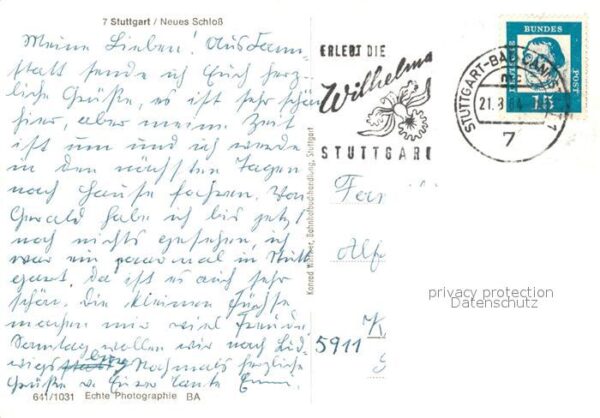 7 Stuttgart / Neues Schloß
Meine Lieben! Aus Cann-
statt sende ich Euch herz-
liche Grüße, es ist sehr schön
hier, aber meine Zeit
ist um und ich werde
in den nächsten Tagen
nach Hause fahren. Von
Gerald habe ich bis jetzt
noch nichts gesehen, ich
war ein paarmal in Stutt
gart, da ist es auch sehr
schön. Die kleinen
machen mir viel Freude.
Sonntag wollen wir nach Lud-
wigsburg Nochmals herzliche
Grüße v. Eurer Tante
641/1031 Echte Photographie BA
Konrad Wittwer, Bahnhofbuchhandlung, Stuttgart
ERLEBT DIE
Wilhelma
STUTTGART
STUTTGART-BAD CANNSTATT 1
21.8.64
7
DEUTSCHE
BUNDES
POST
15
Fa
Alf
5911
privacy protection
Datenschutz